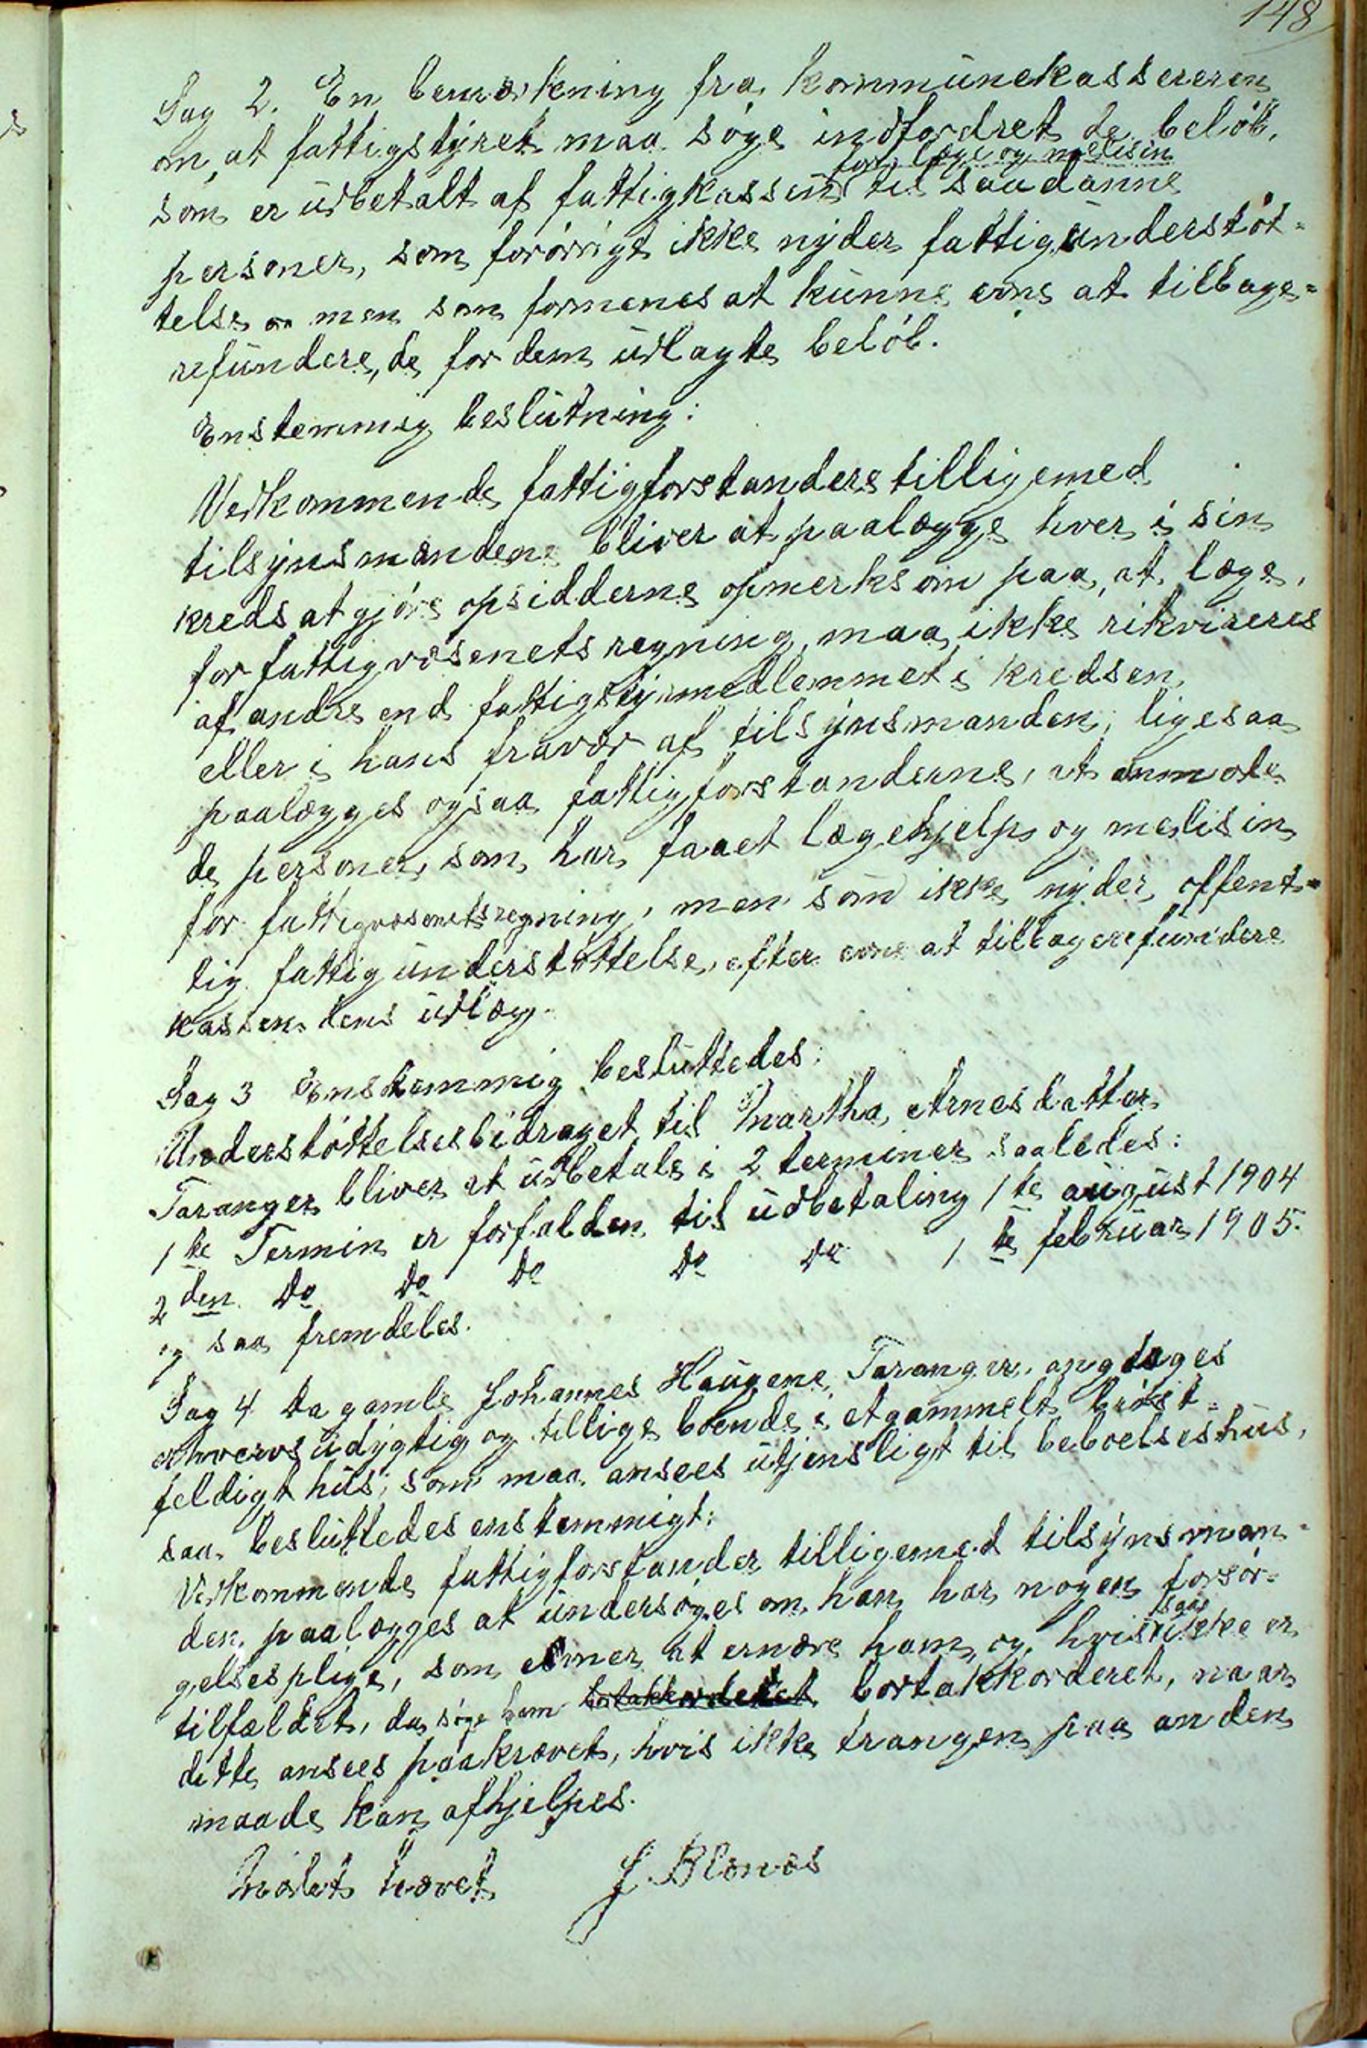 148
Sag 2. En bemærkning fra kommunekassereren
om, at fattigstyret maa søge indfordret de beløb,
for læge og medisin
som er udbetalt af fattigkassen til saadanne
personer, som forøvrigt ikke nyder fattigunderstøt-
telse men som formenes at kunne evne at tilbage-
refundere, de for dem udlagte beløb.
Enstemmig beslutning:
Vedkommende fattigforstandere tilligemed
tilsynsmændene bliver at paalægge hver i sin
kreds at gjøre opsidderne opmerksom paa, at læge,
for fattigvæsenets regning, maa ikke rikvireres
af andre end fattigstyrmedlemmet i kredsen
eller i hans fravær af tilsynsmanden; ligesaa
paalægges ogsaa fattigforstanderne, at anmode
de personer, som har faaet lægehjelp og medisin
for fattigvæsenets regning, men som ikke nyder offent-
lig fattigunderstøttelse, efter evne at tilbagerefundere
kassen dens udlæg.
Sag 3 Enstemmig besluttedes:
Understøttelsesbidraget til Martha Arnesdatter
Taranger bliver at udbetale i 2 terminer saaledes:
1ste Termin er forfalden til udbetaling 1ste august 1904
2den Do Do Do Do Do 1ste februar 1905.
og saa fremdeles.
Sag 4 Da gamle Johannes Haugene Taranger, angdages
erhvervsudygtig og tillige boende i et gammelt brøst-
feldigt hus; som maa ansees utjensligt til beboelseshus,
saa besluttedes enstemmigt:
Vedkommende fattigforstander tilligemed tilsynsman-
den, paalægges at undersøges om han har nogen forsør-
gelsespligt, som evner at ernære ham, og, hvis saa ikke er
tilfældet, da søge ham bortakkorderet, naar
dette ansees paakrævet, hvis ikke trangen paa anden
maade kan afhjelpes.
Mødet hævet J. Blænes